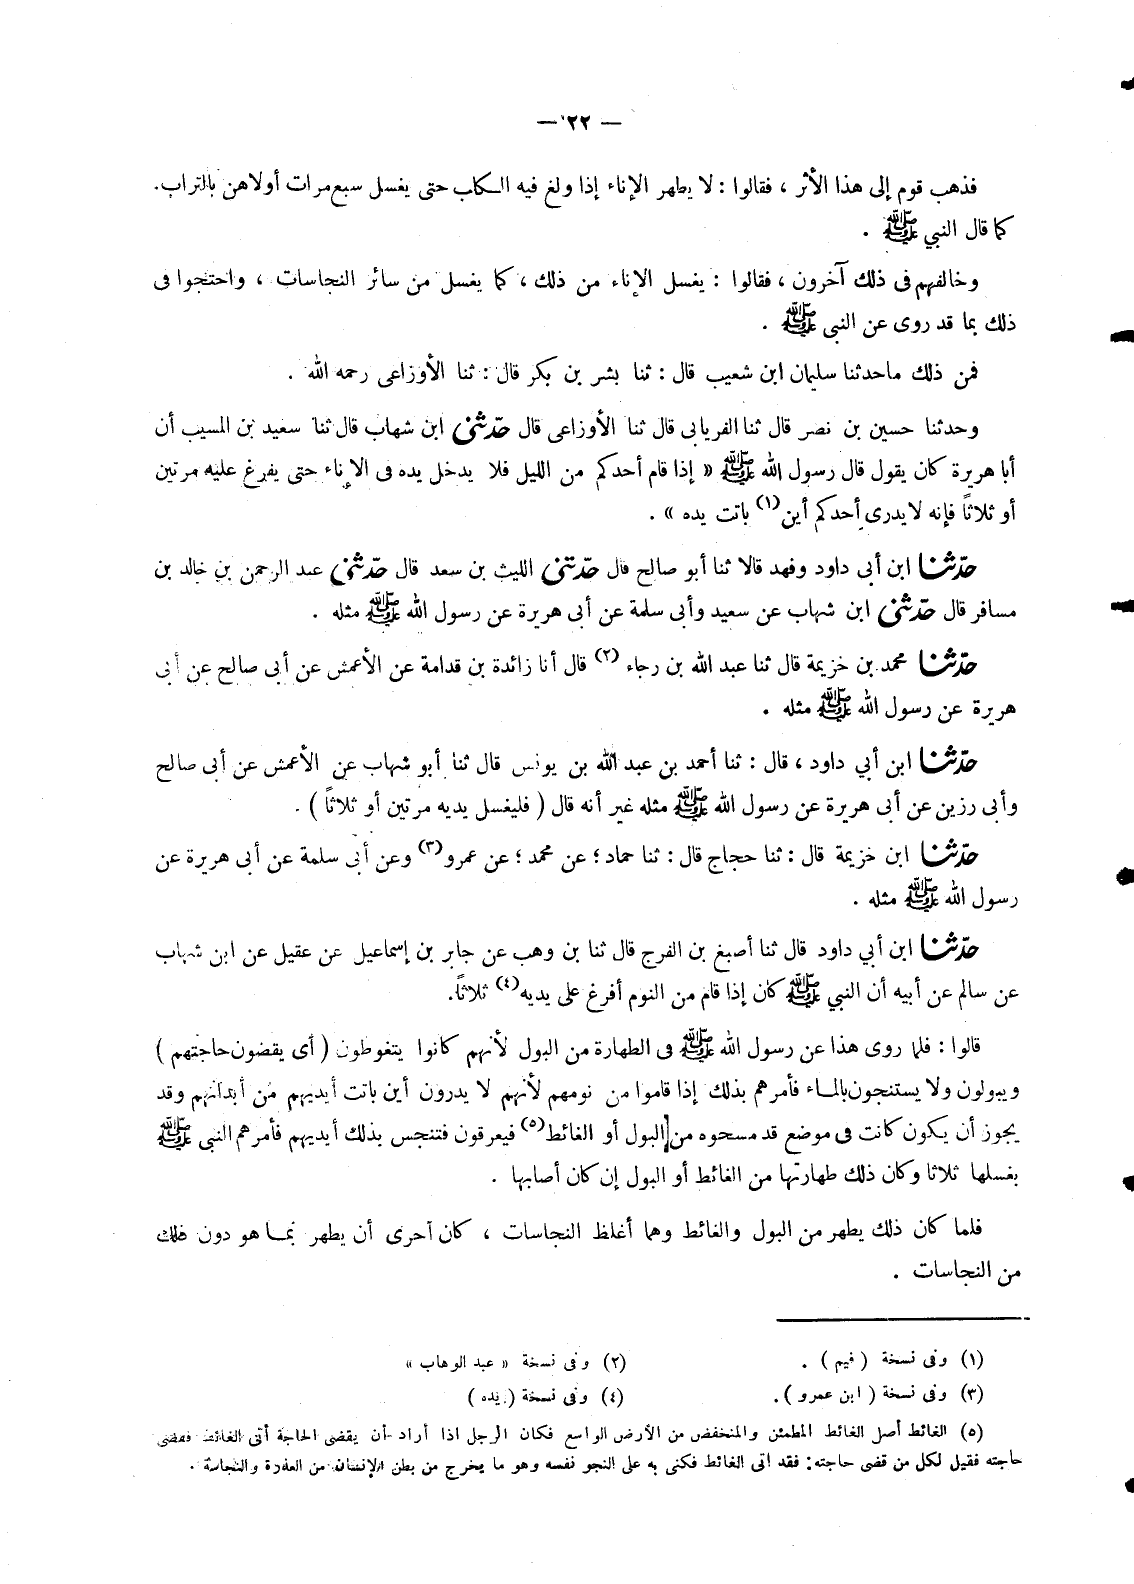 — ٢٢ —
فذهب قوم إلى هذا الأثر ، فقالوا : لا يطهر الإناء إذا ولغ فيه الكلب حتى يغسل سبع مرات أولاهن بالتراب.
كما قال النبي ﷺ .
وخالفهم فى ذلك آخرون ، فقالوا : يغسل الإناء من ذلك ، كما يغسل من سائر النجاسات ، واحتجوا فى
ذلك بما قد روى عن النبى ﷺ .
فمن ذلك ماحدثنا سليمان ابن شعيب قال : ثنا بشر بن بكر قال : ثنا الأوزاعى رحمه الله .
وحدثنا حسين بن نصر قال ثنا الفريابى قال ثنا الأوزاعى قال حدّثنى ابن شهاب قال ثنا سعيد بن المسيب أن
أبا هريرة كان يقول قال رسول الله ﷺ « إذا قام أحدكم من الليل فلا يدخل يده فى الإناء حتى يفرغ عليه مرتين
أو ثلاثاً فإنه لايدرى أحدكم أين(١) باتت يده » .
حدّثنا ابن أبي داود وفهد قالا ثنا أبو صالح قال حدّثنى الليث بن سعد قال حدّثنى عبد الرحمن بن خالد بن
مسافر قال حدّثنى ابن شهاب عن سعيد وأبى سلمة عن أبى هريرة عن رسول الله ﷺ مثله .
حدّثنا محمد بن خزيمة قال ثنا عبد الله بن رجاء (٢) قال أنا زائدة بن قدامة عن الأعمش عن أبى صالح عن أبى
هريرة عن رسول الله ﷺ مثله .
حدّثنا ابن أبي داود ، قال : ثنا أحمد بن عبد الله بن يونس قال ثنا أبو شهاب عن الأعمش عن أبى صالح
وأبى رزين عن أبى هريرة عن رسول الله ﷺ مثله غير أنه قال ( فليغسل يديه مرتين أو ثلاثاً ) .
حدّثنا ابن خزيمة قال : ثنا حجاج قال : ثنا حماد ؛ عن محمد ؛ عن عمرو(٣) وعن أبى سلمة عن أبى هريرة عن
رسول الله ﷺ مثله .
حدّثنا ابن أبي داود قال ثنا أصبغ بن الفرج قال ثنا بن وهب عن جابر بن إسماعيل عن عقيل عن ابن شهاب
عن سالم عن أبيه أن النبي ﷺ كان إذا قام من النوم أفرغ على يديه(٤) ثلاثاً.
قالوا : فلما روى هذا عن رسول الله ﷺ فى الطهارة من البول لأنهم كانوا يتغوطون ( أى يقضون حاجتهم )
ويبولون ولا يستنجون بالماء فأمرهم بذلك إذا قاموا من نومهم لأنهم لا يدرون أين باتت أيديهم من أبدانهم وقد
يجوز أن يكون كانت فى موضع قد مسحوه من البول أو الغائط(٥) فيعرقون فتنجس بذلك أيديهم فأمرهم النبي ﷺ
بغسلها ثلاثا وكان ذلك طهارتها من الغائط أو البول إن كان أصابها .
فلما كان ذلك يطهر من البول والغائط وهما أغلظ النجاسات ، كان آحرى أن يطهر بما هو دون ذلك
من النجاسات .
(١) وفى نسخة ( فيم ) . (٢) وفى نسخة « عبد الوهاب »
(٣) وفى نسخة ( ابن عمرو ) . (٤) وفى نسخة ( يده )
(٥) الغائط أصل الغائط المطمئن والمنخفض من الأرض الواسع فكان الرجل اذا أراد أن يقضى الحاجة أتى الغائط فقضى
حاجته فقيل لكل من قضى حاجته : فقد اتى الغائط فكنى به على النجو نفسه وهو ما يخرج من بطن الإنسان من العذرة والنجاسة .